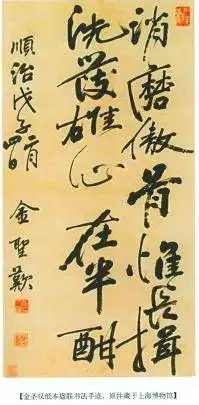 消磨傲骨惟長揖
洗發雄心在半酣
順治戊子二月
金聖歎
【金圣叹纸本楹联书法手迹，原件藏于上海博物馆】